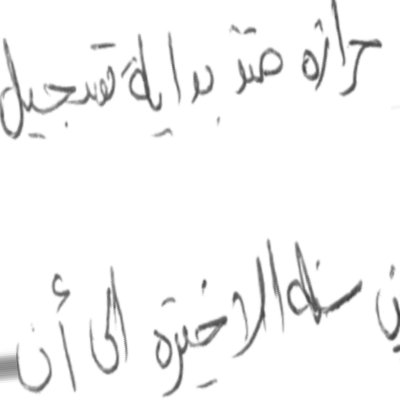 حرارة منذ بداية تسجيل
ين سنة الاخيرة الى أن